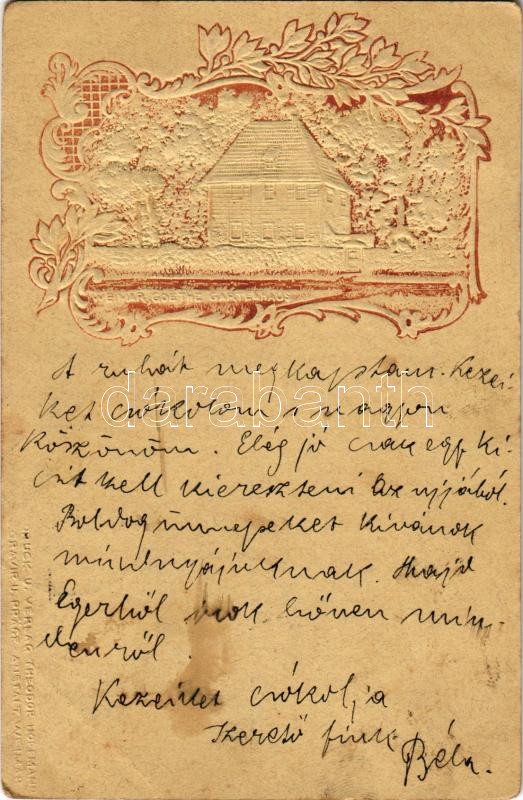 WEIMAR GOETHE
A ruhát megkaptam. Kezei-
ket csókolom s nagyon
köszönöm. Elég jó csak egy ki-
csit kell kiereszteni az ujjából.
Boldog ünnepeket kivánok
mindnyájuknak. Majd
Egerből irok bőven min-
denről.
Kezeiket csókolja
szerető fiuk
Béla.
darabanth
DRUCK U. VERLAG THEODOR
GRAVIR U. PRÄGE ANSTALT WEIMAR